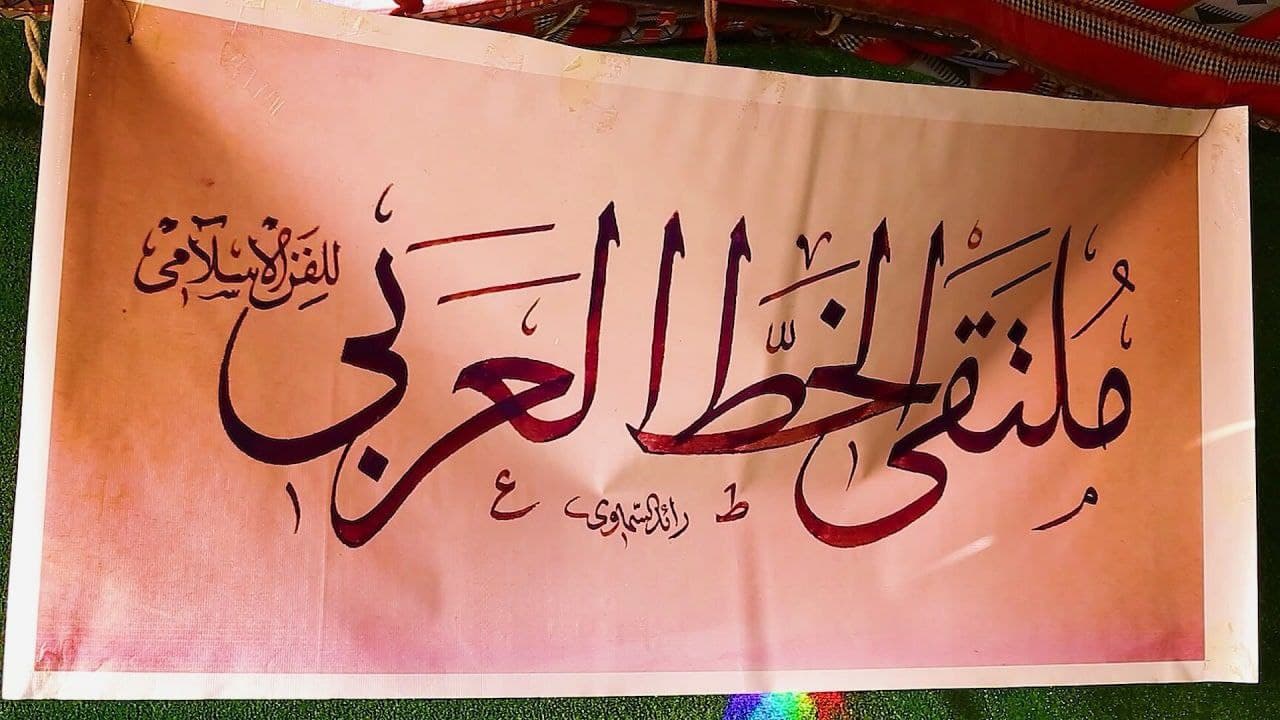 مُلتقى الخطّ العربي
للفَنِ الإسلامي
رائد السّماوي